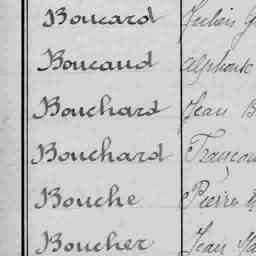 Boucard Julien
Boucaud Alphonse
Bouchard Jean B
Bouchard François
Bouche Pierre
Boucher Jean Ma